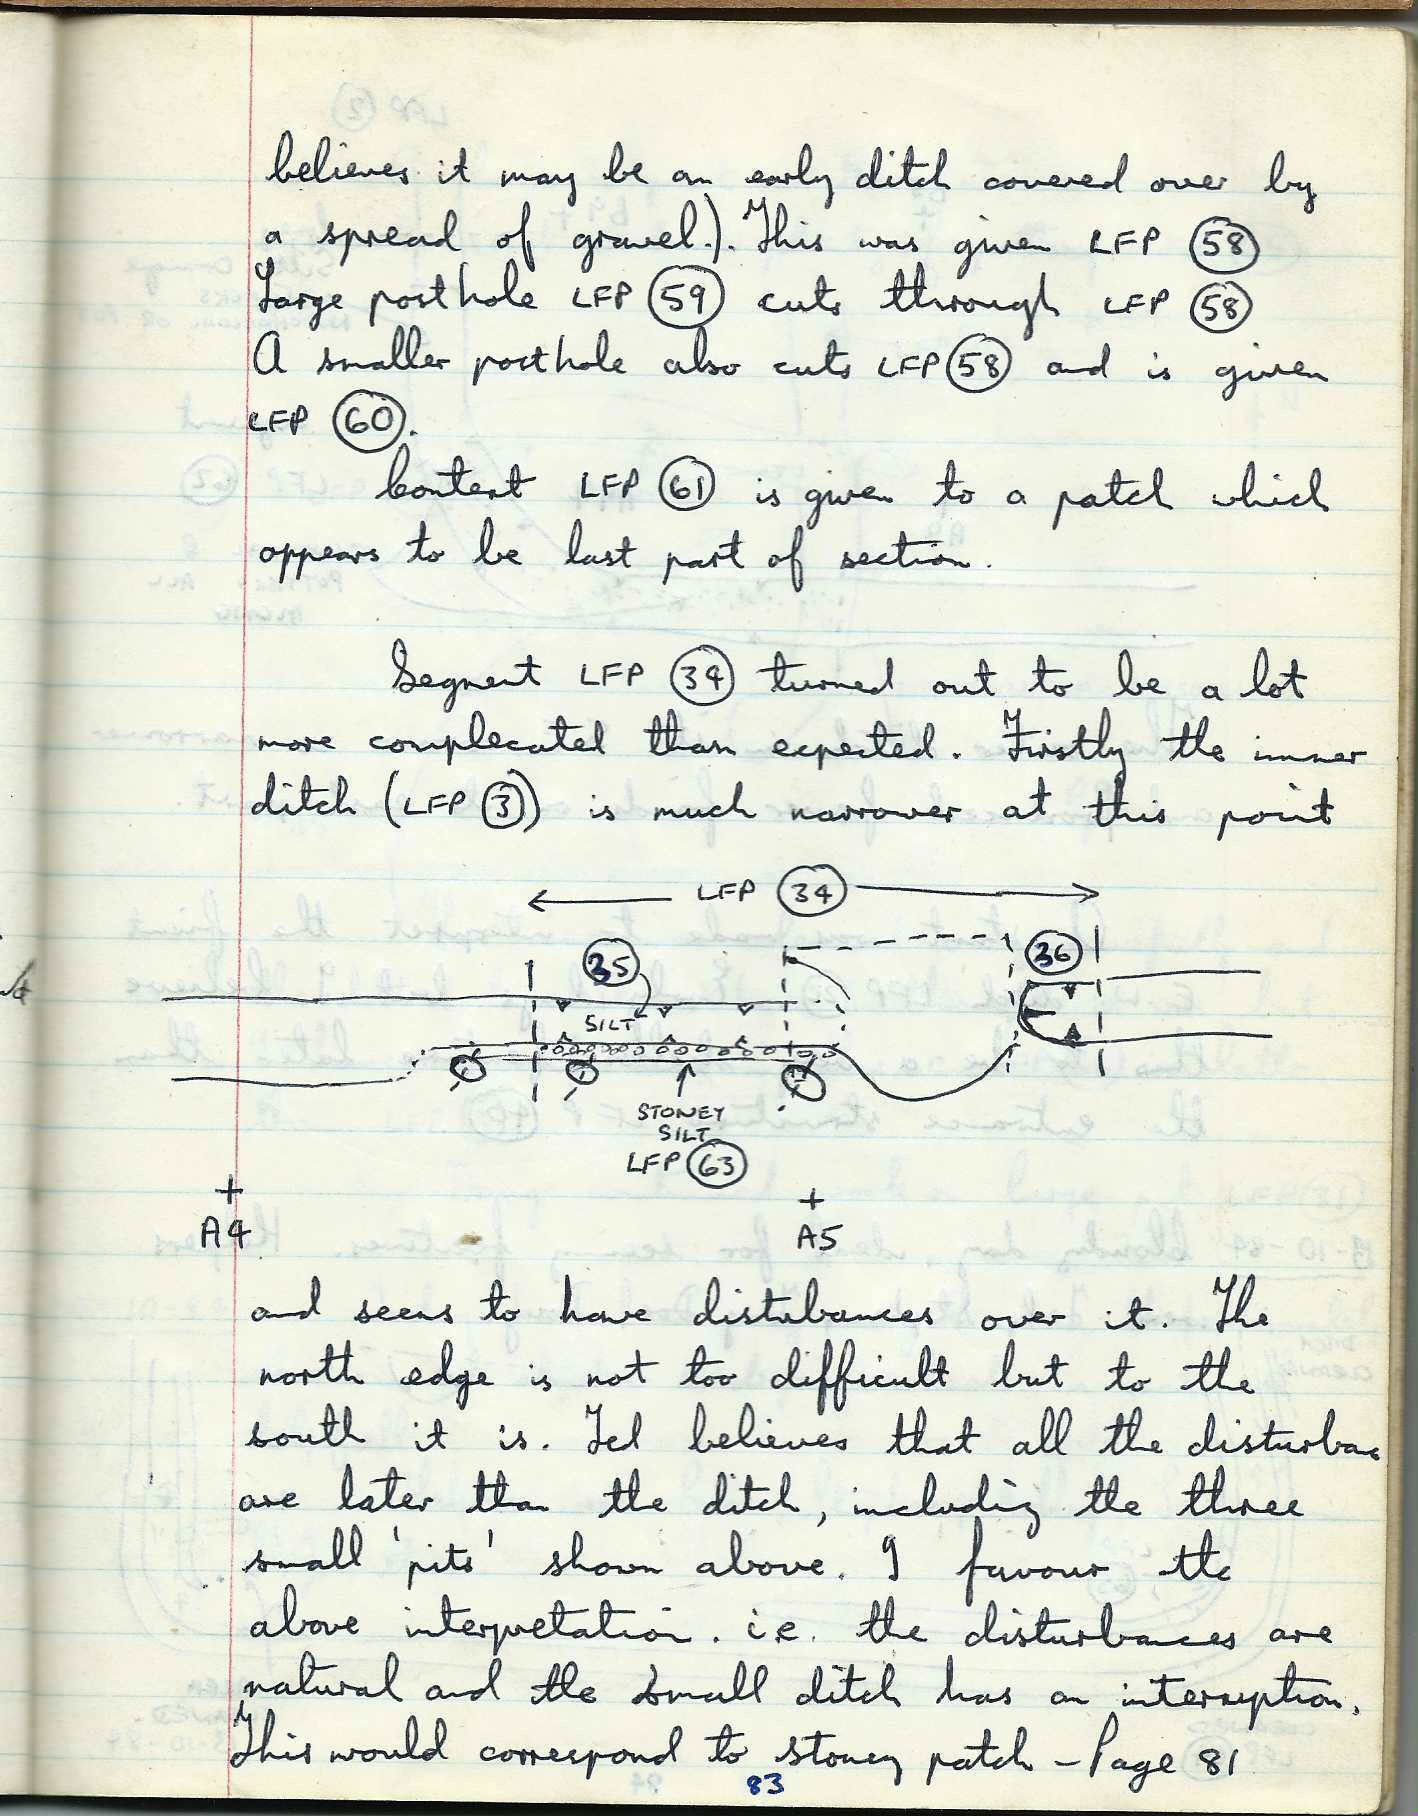 believes it may be an early ditch covered over by
a spread of gravel.). This was given LFP 58
Large posthole LFP 59 cuts through LFP 58
A smaller posthole also cuts LFP 58 and is given
LFP 60.
Context LFP 61 is given to a patch which
appears to be last part of section.
Segment LFP 34 turned out to be a lot
more complecated than expected. Firstly the inner
ditch (LFP 3) is much narrower at this point
LFP 34
35
36
SILT
STONEY
SILT
LFP 63
A4
A5
and seems to have disturbances over it. The
north edge is not too difficult but to the
south it is. Ted believes that all the disturbanc
are later than the ditch, including the three
small 'pits' shown above. I favour the
above interpretation. i.e. the disturbances are
natural and the small ditch has an interruption.
This would correspond to stoney patch - Page 81
83